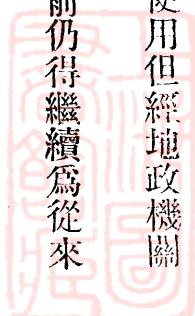 使用但經地政機關
前仍得繼續爲從來